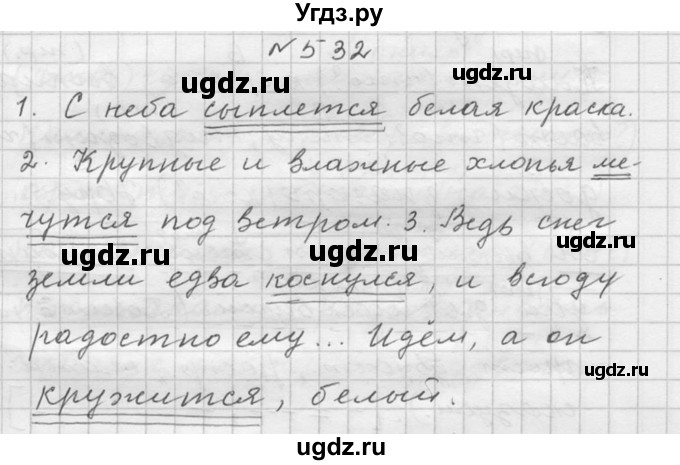 Угдз.ру
№532
ugdz.ru ugdz.ru
1. С неба сыплется белая краска.
ugdz.ru
2. Крупные и влажные хлопья ме-
чутся под ветром. 3. Ведь снег
ugdz.ru ugdz.ru
земли едва коснулся, и всюду
радостно ему... Идём, а он
ugdz.ru
кружится, белый.
ugdz.ru